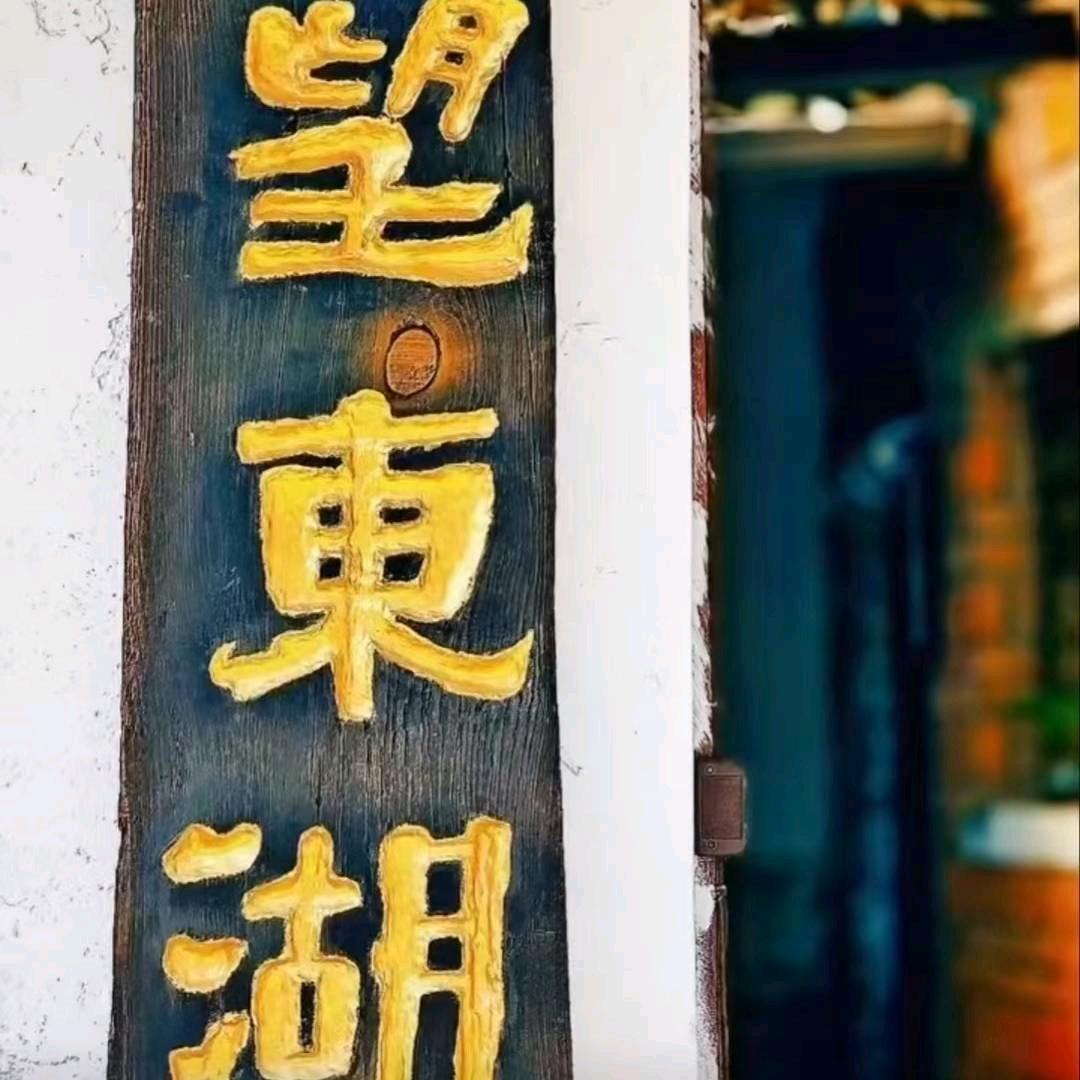 望東湖